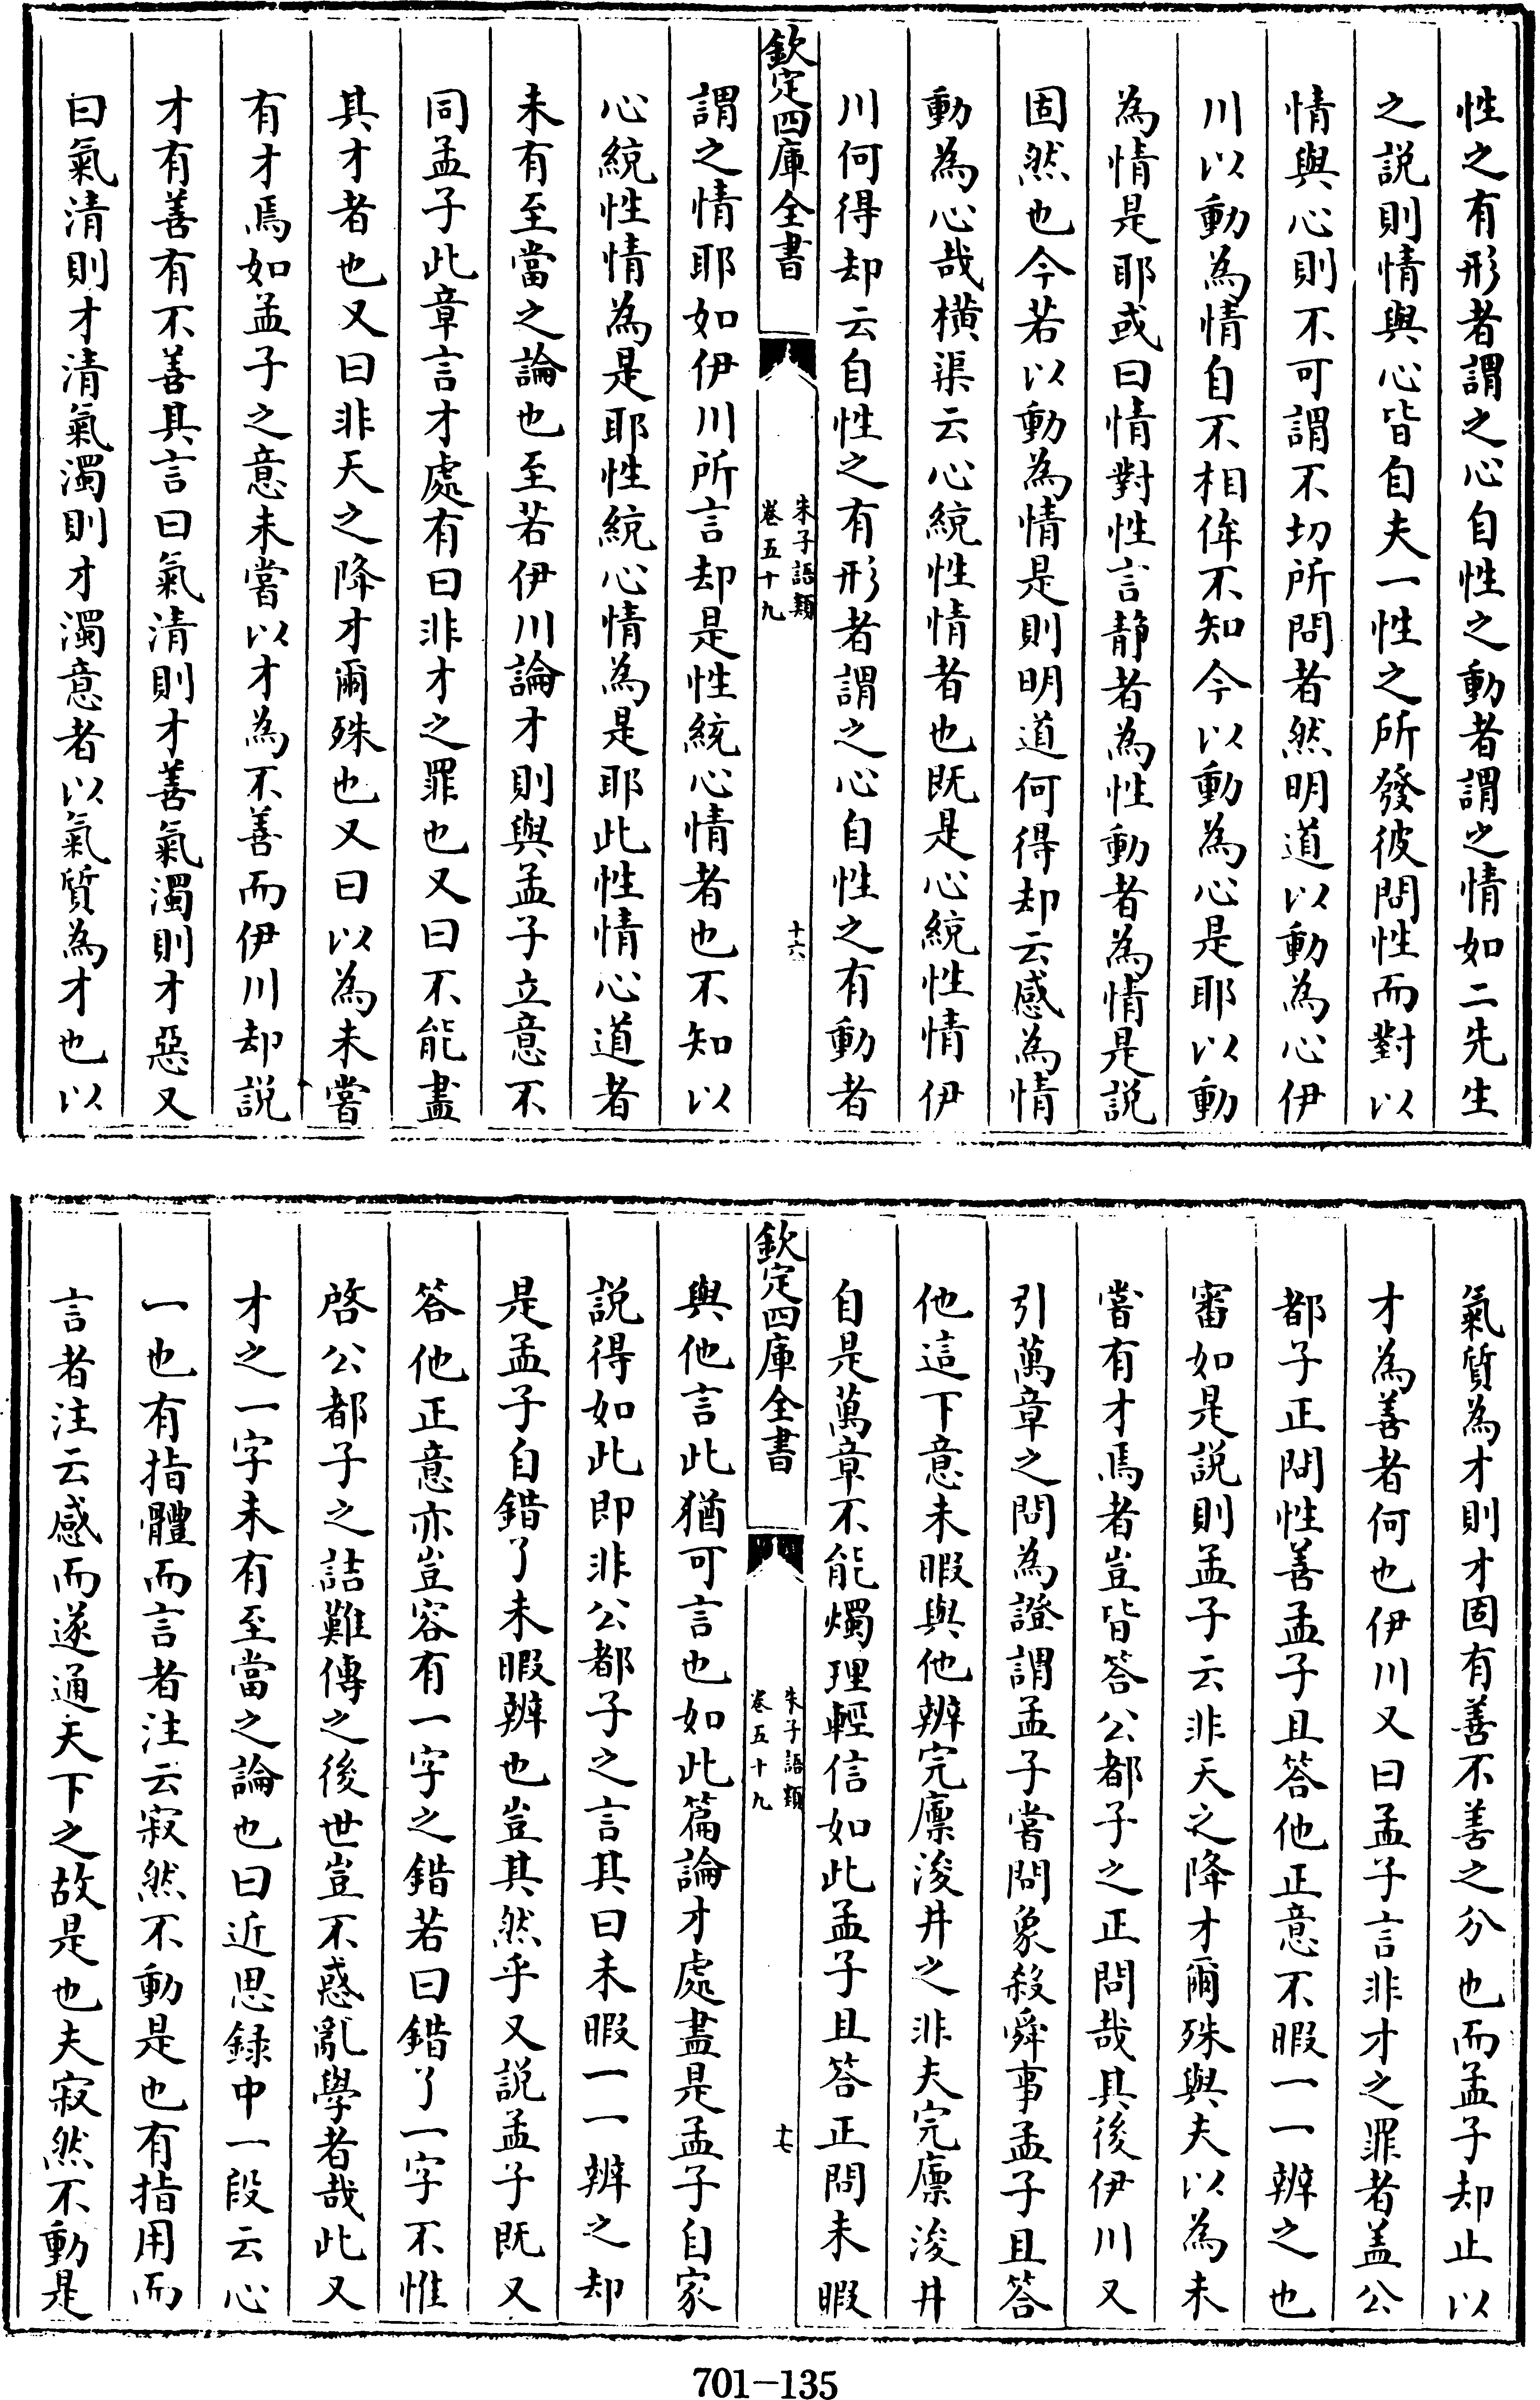 性之有形者謂之心自性之動者謂之情如二先生
之説則情與心皆自夫一性之所發彼問性而對以
情與心則不可謂不切所問者然明道以動為心伊
川以動為情自不相侔不知今以動為心是耶以動
為情是耶或曰情對性言静者為性動者為情是説
固然也今若以動為情是則明道何得却云感為情
動為心哉横渠云心統性情者也既是心統性情伊
川何得却云自性之有形者謂之心自性之有動者
欽定四庫全書
朱子語類
卷五十九
十六
謂之情耶如伊川所言却是性統心情者也不知以
心統性情為是耶性統心情為是耶此性情心道者
未有至當之論也至若伊川論才則與孟子立意不
同孟子此章言才處有曰非才之罪也又曰不能盡
其才者也又曰非天之降才爾殊也又曰以為未嘗
有才焉如孟子之意未嘗以才為不善而伊川却説
才有善有不善其言曰氣清則才善氣濁則才惡又
曰氣清則才清氣濁則才濁意者以氣質為才也以
氣質為才則才固有善不善之分也而孟子却止以
才為善者何也伊川又曰孟子言非才之罪者盖公
都子正問性善孟子且答他正意不暇一一辨之也
審如是説則孟子云非天之降才爾殊與夫以為未
嘗有才焉者豈皆答公都子之正問哉其後伊川又
引萬章之問為證謂孟子嘗問象殺舜事孟子且答
他這下意未暇與他辨完廪浚井之非夫完廪浚井
自是萬章不能燭理輕信如此孟子且答正問未暇
欽定四庫全書
朱子語類
卷五十九
十七
與他言此猶可言也如此篇論才處盡是孟子自家
説得如此即非公都子之言其曰未暇一一辨之却
是孟子自錯了未暇辨也豈其然乎又説孟子既又
答他正意亦豈容有一字之錯若曰錯了一字不惟
啓公都子之詰難傳之後世豈不惑亂學者哉此又
才之一字未有至當之論也曰近思録中一段云心
一也有指體而言者注云寂然不動是也有指用而
言者注云感而遂通天下之故是也夫寂然不動是
701-135